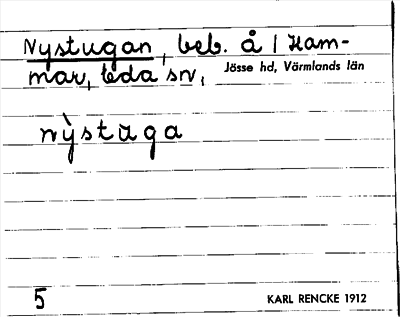 Nystugan, beb. å 1 Ham-
mar, Eda sn,
Jösse hd, Värmlands län
nỳstuga
5
KARL RENCKE 1912